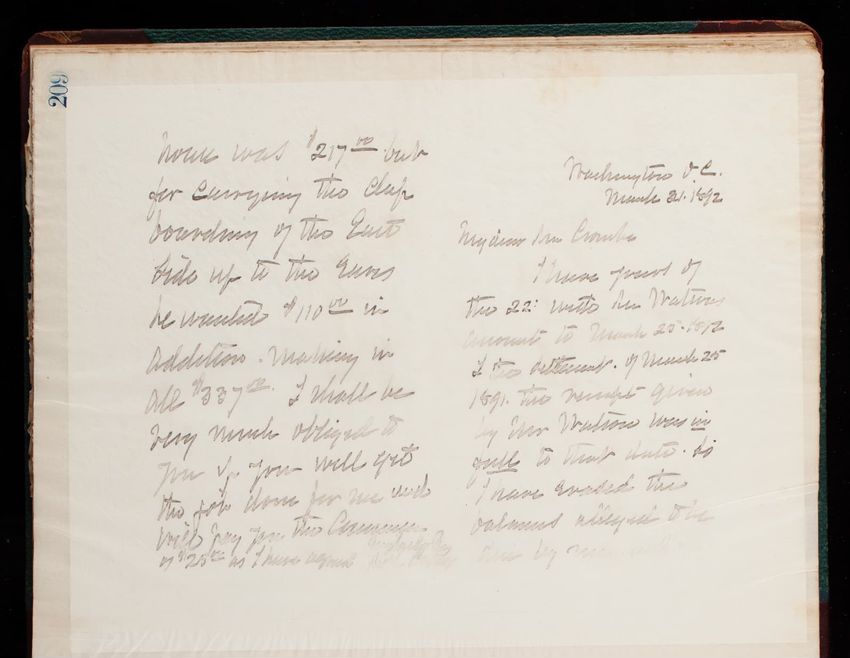 209
house was $217.00 but
for carrying the Clap
boarding of the East
Side up to the Eaves
he wanted $110.00 in
addition. Making in
all $337.00. I shall be
very much obliged to
you if you will get
the job done for me and
will pay you the Commission
of $25.00 as I have agreed
Washington D.C.
March 31. 1892
My dear Mr Crombie
I have yours of
the 22: with Mr Watsons
account to March 25. 1892
I the settlement of March 25
1891. the receipt given
by Mr Watson was in
full to that date. So
I have erased the
balance alleged to be
due by